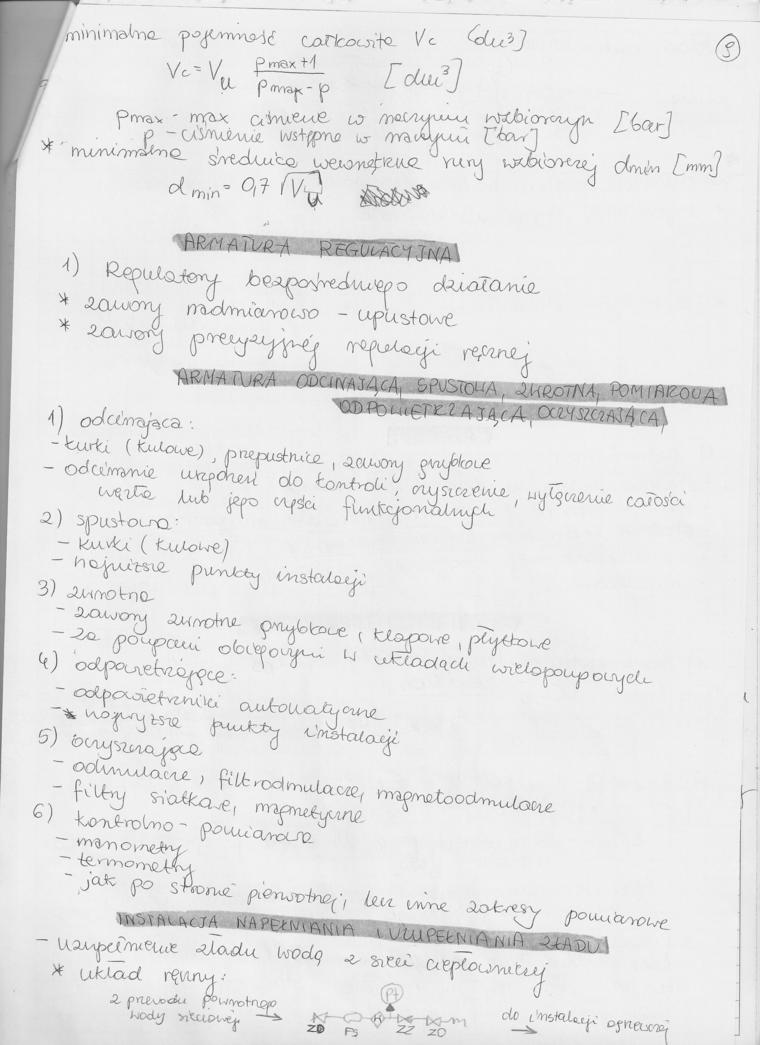 minimalna pojemność całkowita Vc [dm³]
9
Vc = Vu (pmax+1)/(pmax-p) [dm³]
pmax - max ciśnienie w naczyniu wzbiorczym [bar]
p - ciśnienie wstępne w naczyniu [bar]
* minimalna średnica wewnętrzna rury wzbiorczej dmin [mm]
dmin = 0,7 √Vu
ARMATURA REGULACYJNA
1) Regulatory bezpośredniego działania
* zawory nadmiarowo - upustowe
* zawory precyzyjnej regulacji ręcznej
ARMATURA ODCINAJĄCA, SPUSTOWA, ZWROTNA, POMIAROWA
ODPOWIETRZAJĄCA, OCZYSZCZAJĄCA,
1) odcinająca:
- kurki (kulowe), przepustnice, zawory grzybkowe
- odcinanie urządzeń do kontroli, czyszczenie, wyłączenie całości
węzła lub jego części funkcjonalnych
2) spustowa:
- kurki (kulowe)
- najniższe punkty instalacji
3) zwrotna
- zawory zwrotne grzybkowe, klapowe, płytkowe
- za pompami obiegowymi w układach wielopompowych
4) odpowietrzające:
- odpowietrzniki automatyczne
- * najwyższe punkty instalacji
5) oczyszczające
- odmulacze, filtroodmulacze, magnetoodmulacze
- filtry siatkowe, magnetyczne
6) kontrolno - pomiarowa
- manometry
- termometry
- jak po stronie pierwotnej, lecz inne zakresy pomiarowe
INSTALACJA NAPEŁNIANIA I UZUPEŁNIANIA ZŁADU
- uzupełnienie zładu wodą z sieci ciepłowniczej
* układ ręczny:
z przewodu powrotnego
wody sieciowej →
ZO FS ZZ ZO
do instalacji ogrzewczej
→